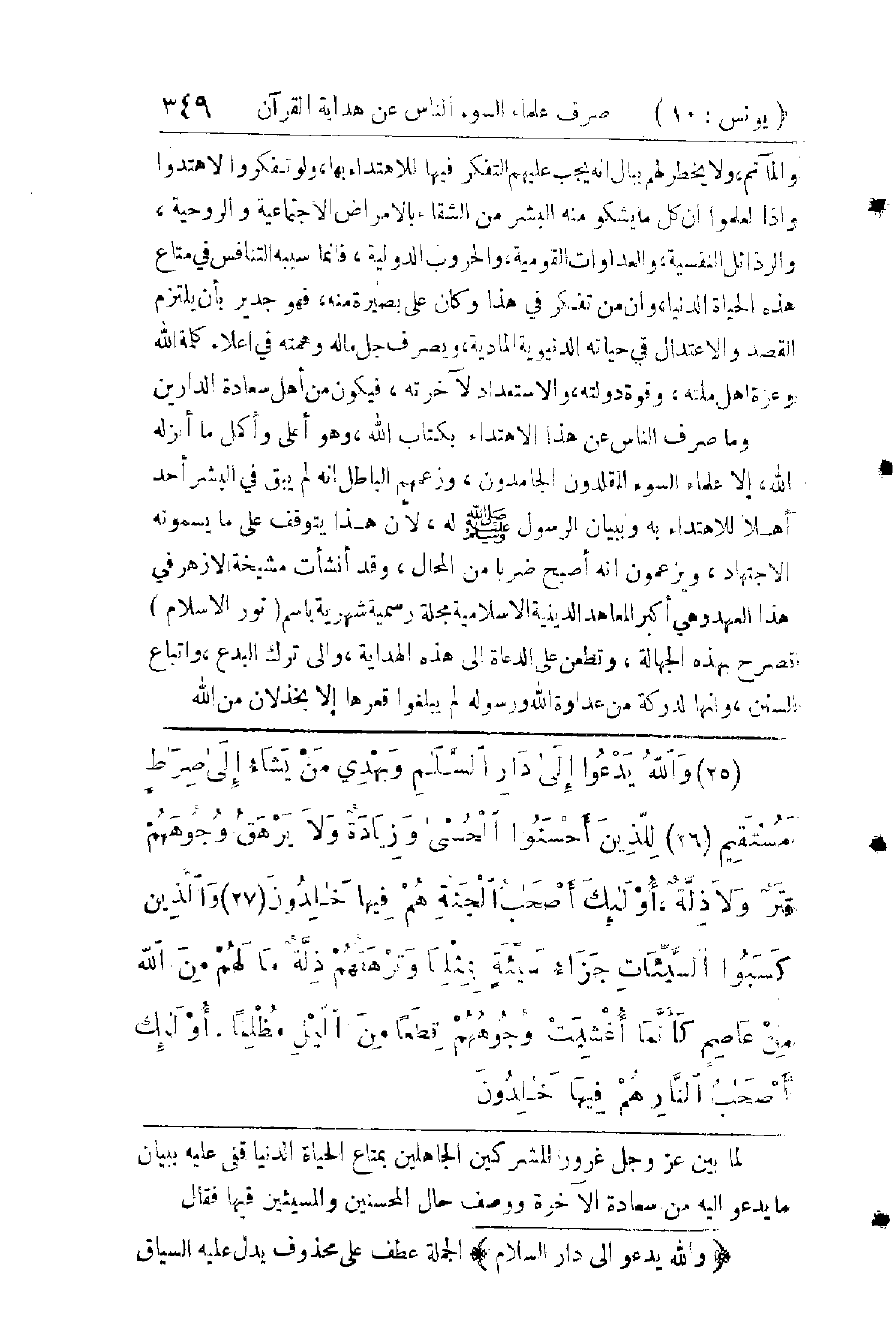 ( يونس : ١٠ ) صرف علماء السوء الناس عن هداية القرآن ٣٤٩
والمآتم، ولا يخطر لهم ببال انه يجب عليهم التفكر فيها للاهتداء بها، ولو تفكروا لاهتدوا
واذا لعلموا أن كل ما يشكو منه البشر من الشقاء بالامراض الاجتماعية والروحية ،
والرذائل النفسية، والعداوات القومية، والحروب الدولية ، فانما سببه التنافس في متاع
هذه الحياة الدنيا، وأن من تفكر في هذا وكان على بصيرة منه، فهو جدير بأن يلتزم
القصد والاعتدال في حياته الدنيوية المادية، ويصرف جل ماله وهمته في اعلاء كلمة الله
وعزة اهل ملته ، وقوة دولته، والاستعداد لآخرته ، فيكون من أهل سعادة الدارين
وما صرف الناس عن هذا الاهتداء بكتاب الله ، وهو أعلى وأكمل ما أنزله
الله، إلا علماء السوء المقلدون الجامدون ، وزعمهم الباطل انه لم يبق في البشر أحد
أهلا للاهتداء به وببيان الرسول ﷺ له ، لأن هذا يتوقف على ما يسمونه
الاجتهاد ، ويزعمون انه أصبح ضربا من المحال ، وقد أنشأت مشيخة الازهر في
هذا العهد وهي أكبر المعاهد الدينية الاسلامية مجلة رسمية شهرية باسم ( نور الاسلام )
تصرح بهذه الجهالة ، وتطعن على الدعاة الى هذه الهداية ، والى ترك البدع ، واتباع
السنن ، وانها لدركة من عداوة الله ورسوله لم يبلغوا قعرها إلا بخذلان من الله
(٢٥) وَٱللَّهُ يَدْعُوا إِلَىٰ دَارِ ٱلسَّلَٰمِ وَيَهْدِي مَنْ يَشَاءُ إِلَىٰ صِرَٰطٍ
مُسْتَقِيمٍ (٢٦) لِلَّذِينَ أَحْسَنُوا ٱلْحُسْنَىٰ وَزِيَادَةٌ وَلَا يَرْهَقُ وُجُوهَهُمْ
قَتَرٌ وَلَا ذِلَّةٌ ، أُوْلَٰئِكَ أَصْحَٰبُ ٱلْجَنَّةِ هُمْ فِيهَا خَٰلِدُونَ (٢٧) وَٱلَّذِينَ
كَسَبُوا ٱلسَّيِّئَاتِ جَزَاءُ سَيِّئَةٍ بِمِثْلِهَا وَتَرْهَقُهُمْ ذِلَّةٌ مَا لَهُمْ مِنَ ٱللهِ
مِنْ عَاصِمٍ كَأَنَّمَا أُغْشِيَتْ وُجُوهُهُمْ قِطَعًا مِنَ ٱلَّيْلِ مُظْلِمًا . أُوْلَٰئِكَ
أَصْحَٰبُ ٱلنَّارِ هُمْ فِيهَا خَٰلِدُونَ
لما بين عز وجل غرور المشركين الجاهلين بمتاع الحياة الدنيا قفى عليه ببيان
ما يدعو اليه من سعادة الآخرة ووصف حال المحسنين والمسيئين فيها فقال
﴿ والله يدعو الى دار السلام ﴾ الجملة عطف على محذوف يدل عليه السياق